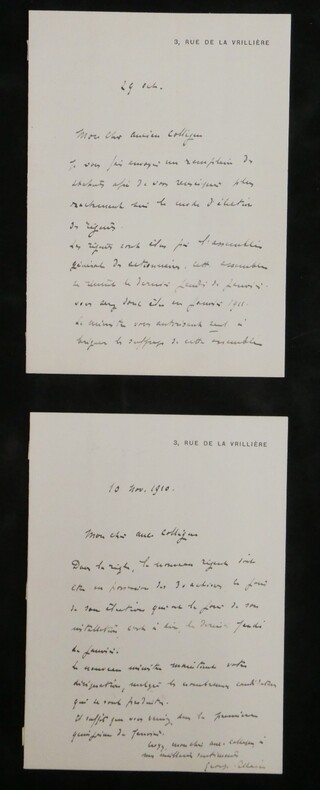 3, RUE DE LA VRILLIÈRE
29 Oct.
Mon cher ancien Collègue
Je vous fais envoyer un exemplaire de
statuts afin de vous renseigner plus
exactement sur le mode d'élection
des régents
Les régents sont élus par l'assemblée
générale des actionnaires. Cette assemblée
se réunit le dernier jeudi de janvier.
vous serez donc élu en janvier 1911.
Le ministre vous autorisant seul à
briguer les suffrages de cette assemblée
3, RUE DE LA VRILLIÈRE
10 Nov. 1910.
Mon cher anc. Collègue
Dans la règle, le nouveau régent doit
être en possession des actions le jour
de son élection qui est le jour de son
installation, c'est à dire le dernier jeudi
de janvier.
Le nouveau ministre maintient votre
désignation, malgré les nombreuses candidatures
qui se sont produites.
Il suffit que vous veniez dans la première
quinzaine de janvier.
mon cher anc. collègue, à
mes meilleurs sentiments